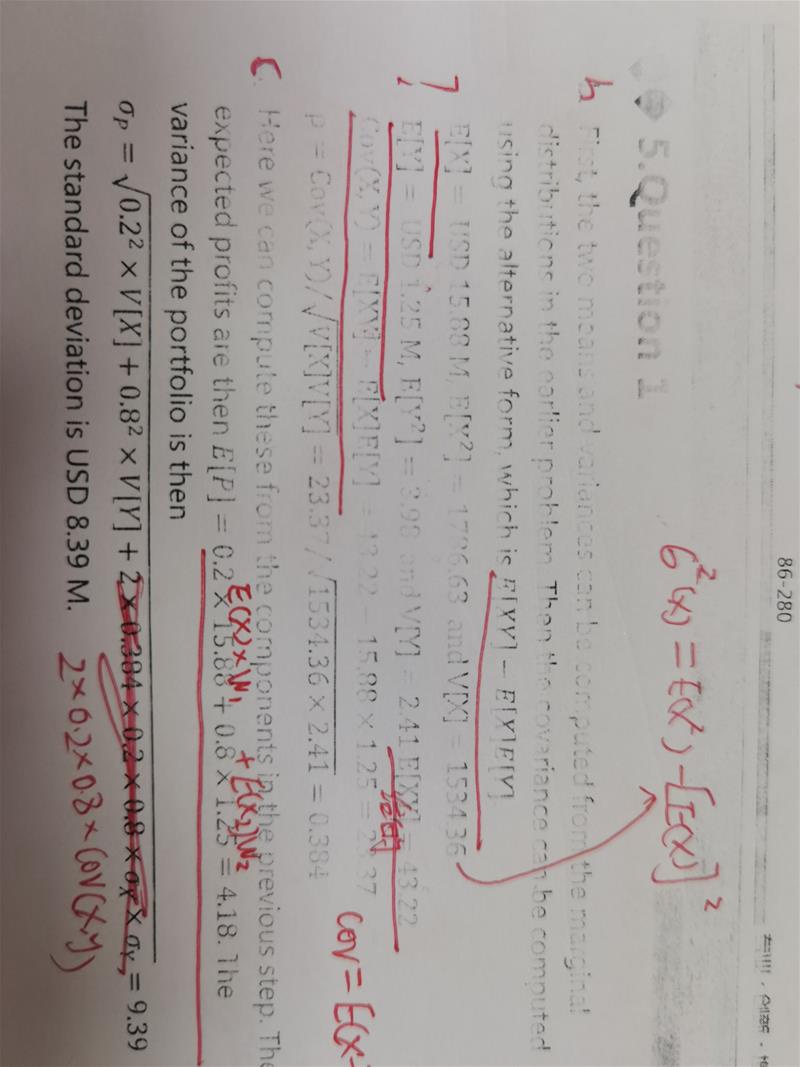 86-280
5.Question 1
σ²(x) = E(x²) - [E(x)]²
b First, the two means and variances can be computed from the marginal
distributions in the earlier problem. Then the covariance can be computed
using the alternative form, which is E[XY] − E[X]E[Y]
E[X] = USD 15.88 M, E[X²] = 1786.63 and V[X] = 1534.36
E[Y] = USD 1.25 M, E[Y²] = 3.98 and V[Y] = 2.41 E[XY] = 43.22
Cov(X, Y) = E[XY] − E[X]E[Y] = 43.22 − 15.88 × 1.25 = 23.37
ρ = Cov(X, Y)/√V[X]V[Y] = 23.37/√1534.36 × 2.41 = 0.384
Cov = E(X
C. Here we can compute these from the components in the previous step. The
E(X₁)×W₁ + E(X₂)W₂
expected profits are then E[P] = 0.2 × 15.88 + 0.8 × 1.25 = 4.18. The
variance of the portfolio is then
σP = √0.2² × V[X] + 0.8² × V[Y] + 2 × 0.384 × 0.2 × 0.8 × σX × σY = 9.39
The standard deviation is USD 8.39 M.
2×0.2×0.8×COV(X,Y)